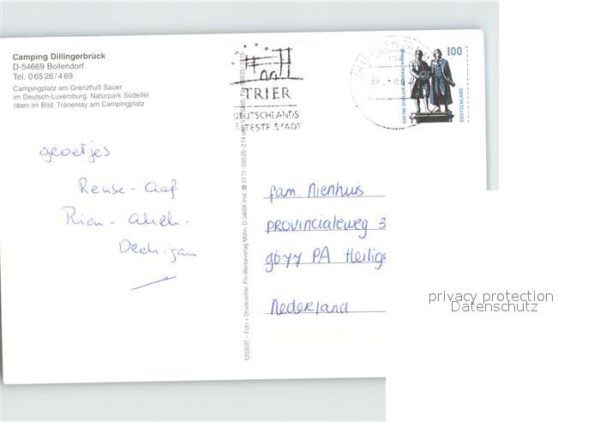 Camping Dillingerbrück
D-54669 Bollendorf
Tel. 0 65 26 / 4 69
Campingplatz am Grenzfluß Sauer
im Deutsch-Luxemburg Naturpark Südeifel
oben im Bild: Tränenlay am Campingplatz
TRIER
DEUTSCHLANDS
ÄLTESTE STADT
100
DEUTSCHLAND
groetjes
Rense - Aaf
Rien -
fam. Nienhuis
Provincialeweg 3
9677 PA Heilige
Nederland
privacy protection
Datenschutz